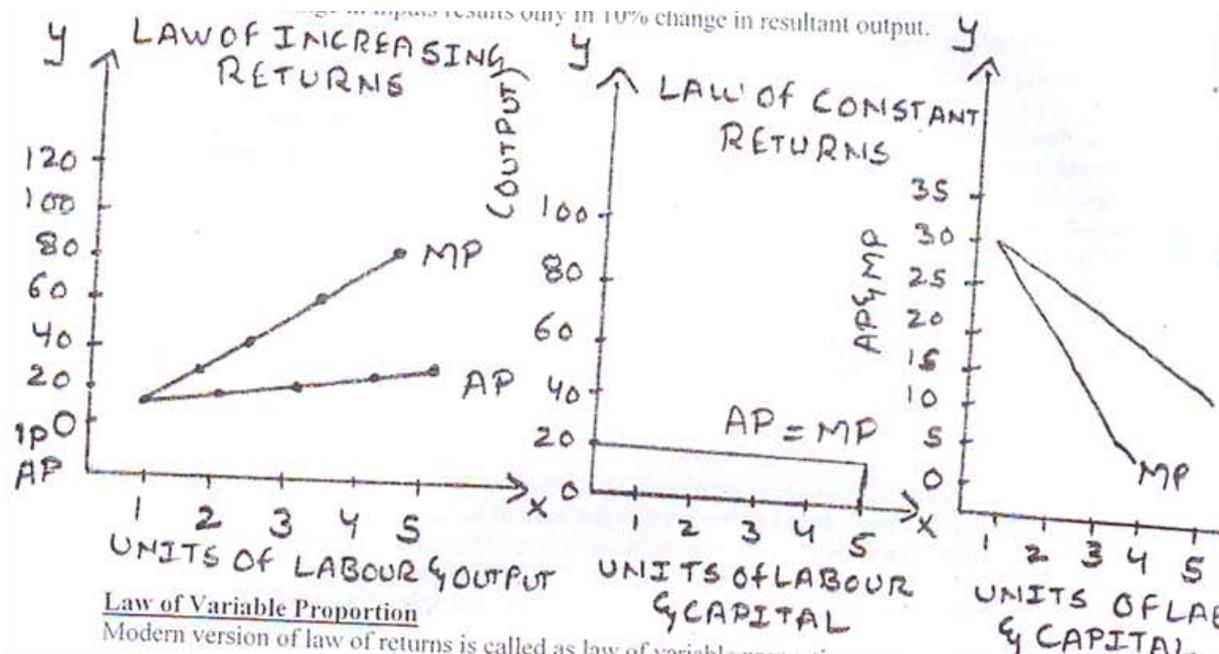 in inputs results only in 10% change in resultant output.
y
LAW OF INCREASING
RETURNS
120
100
80
60
40
20
0
AP
MP
AP
1 2 3 4 5
x
UNITS OF LABOUR & OUTPUT
y
(OUTPUT)
LAW OF CONSTANT
RETURNS
100
80
60
40
20
0
AP = MP
1 2 3 4 5
x
UNITS OF LABOUR
& CAPITAL
y
AP & MP
35
30
25
20
15
10
5
0
MP
1 2 3 4 5
UNITS OF LAB
& CAPITAL
Law of Variable Proportion
Modern version of law of returns is called as law of variable